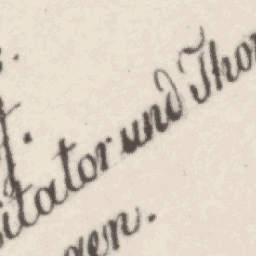 itator und Thor
gen.